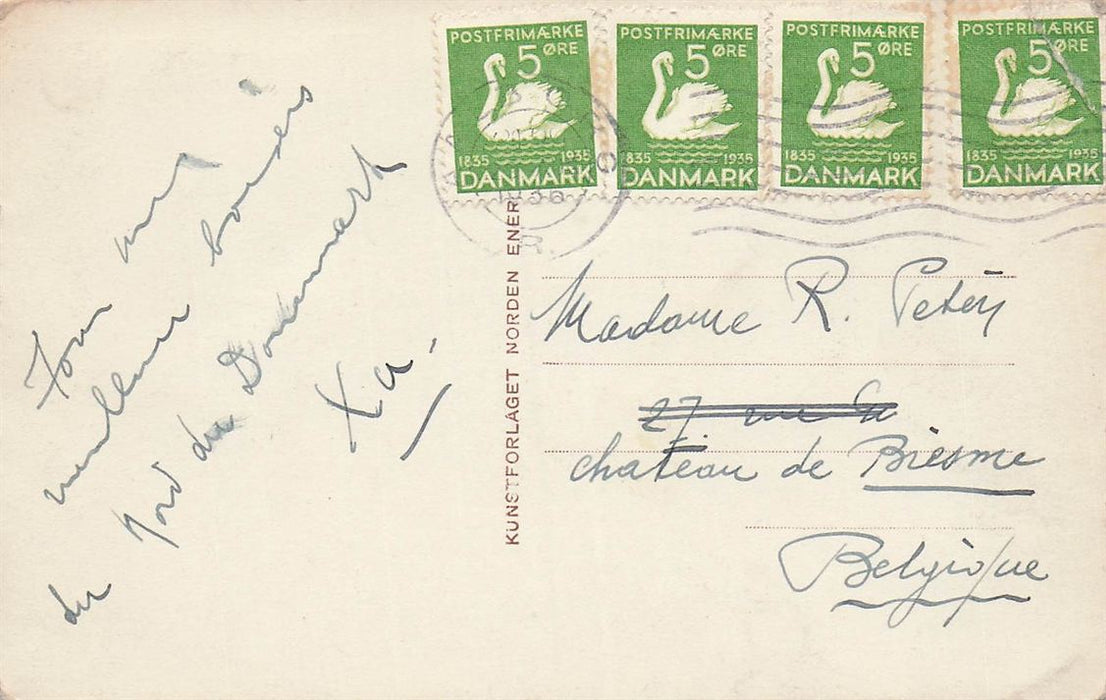 POSTFRIMÆRKE
5 ØRE
1835 1935
DANMARK
POSTFRIMÆRKE
5 ØRE
1835 1935
DANMARK
POSTFRIMÆRKE
5 ØRE
1835 1935
DANMARK
POSTFRIMÆRKE
5 ØRE
1835 1935
DANMARK
KUNSTFORLAGET NORDEN ENER
Tous mes
meilleurs baisers
du Nord du Danemark
Madame R. Petery
27 rue
château de Biesme
Belgique